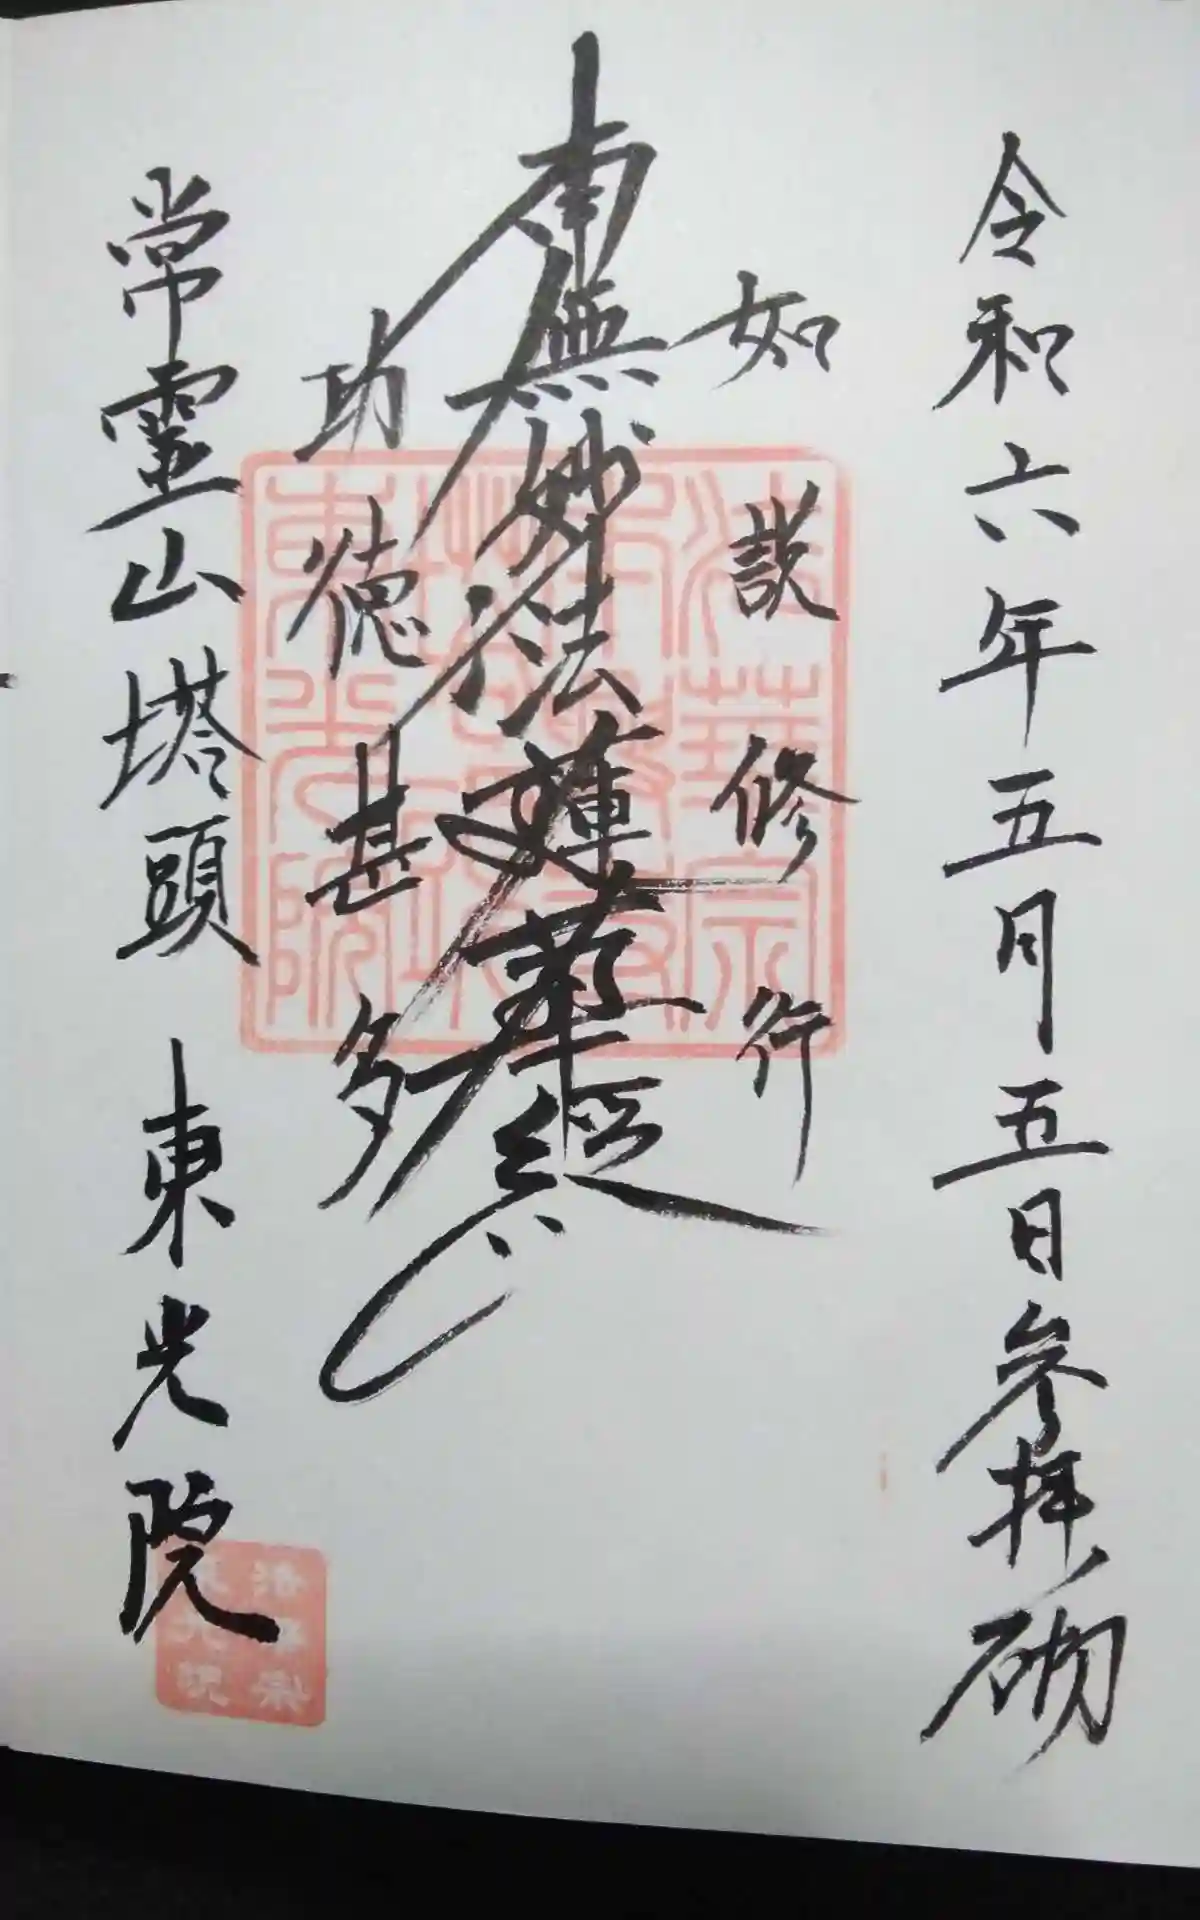 令和六年五月五日参拝砌
如説修行
南無妙法蓮華経
功徳甚多
常霊山塔頭 東光院
法華宗
東光院